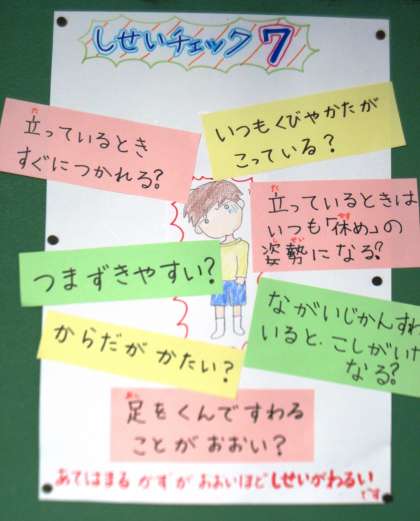 しせいチェック7
立っているとき
すぐにつかれる?
いつもくびやかたが
こっている?
立っているときは
いつも「休め」の
姿勢になる?
つまずきやすい?
ながいじかんすわ
いると、こしがいた
なる?
からだがかたい?
足をくんですわる
ことがおおい?
あてはまるかずがおおいほどしせいがわるい
です